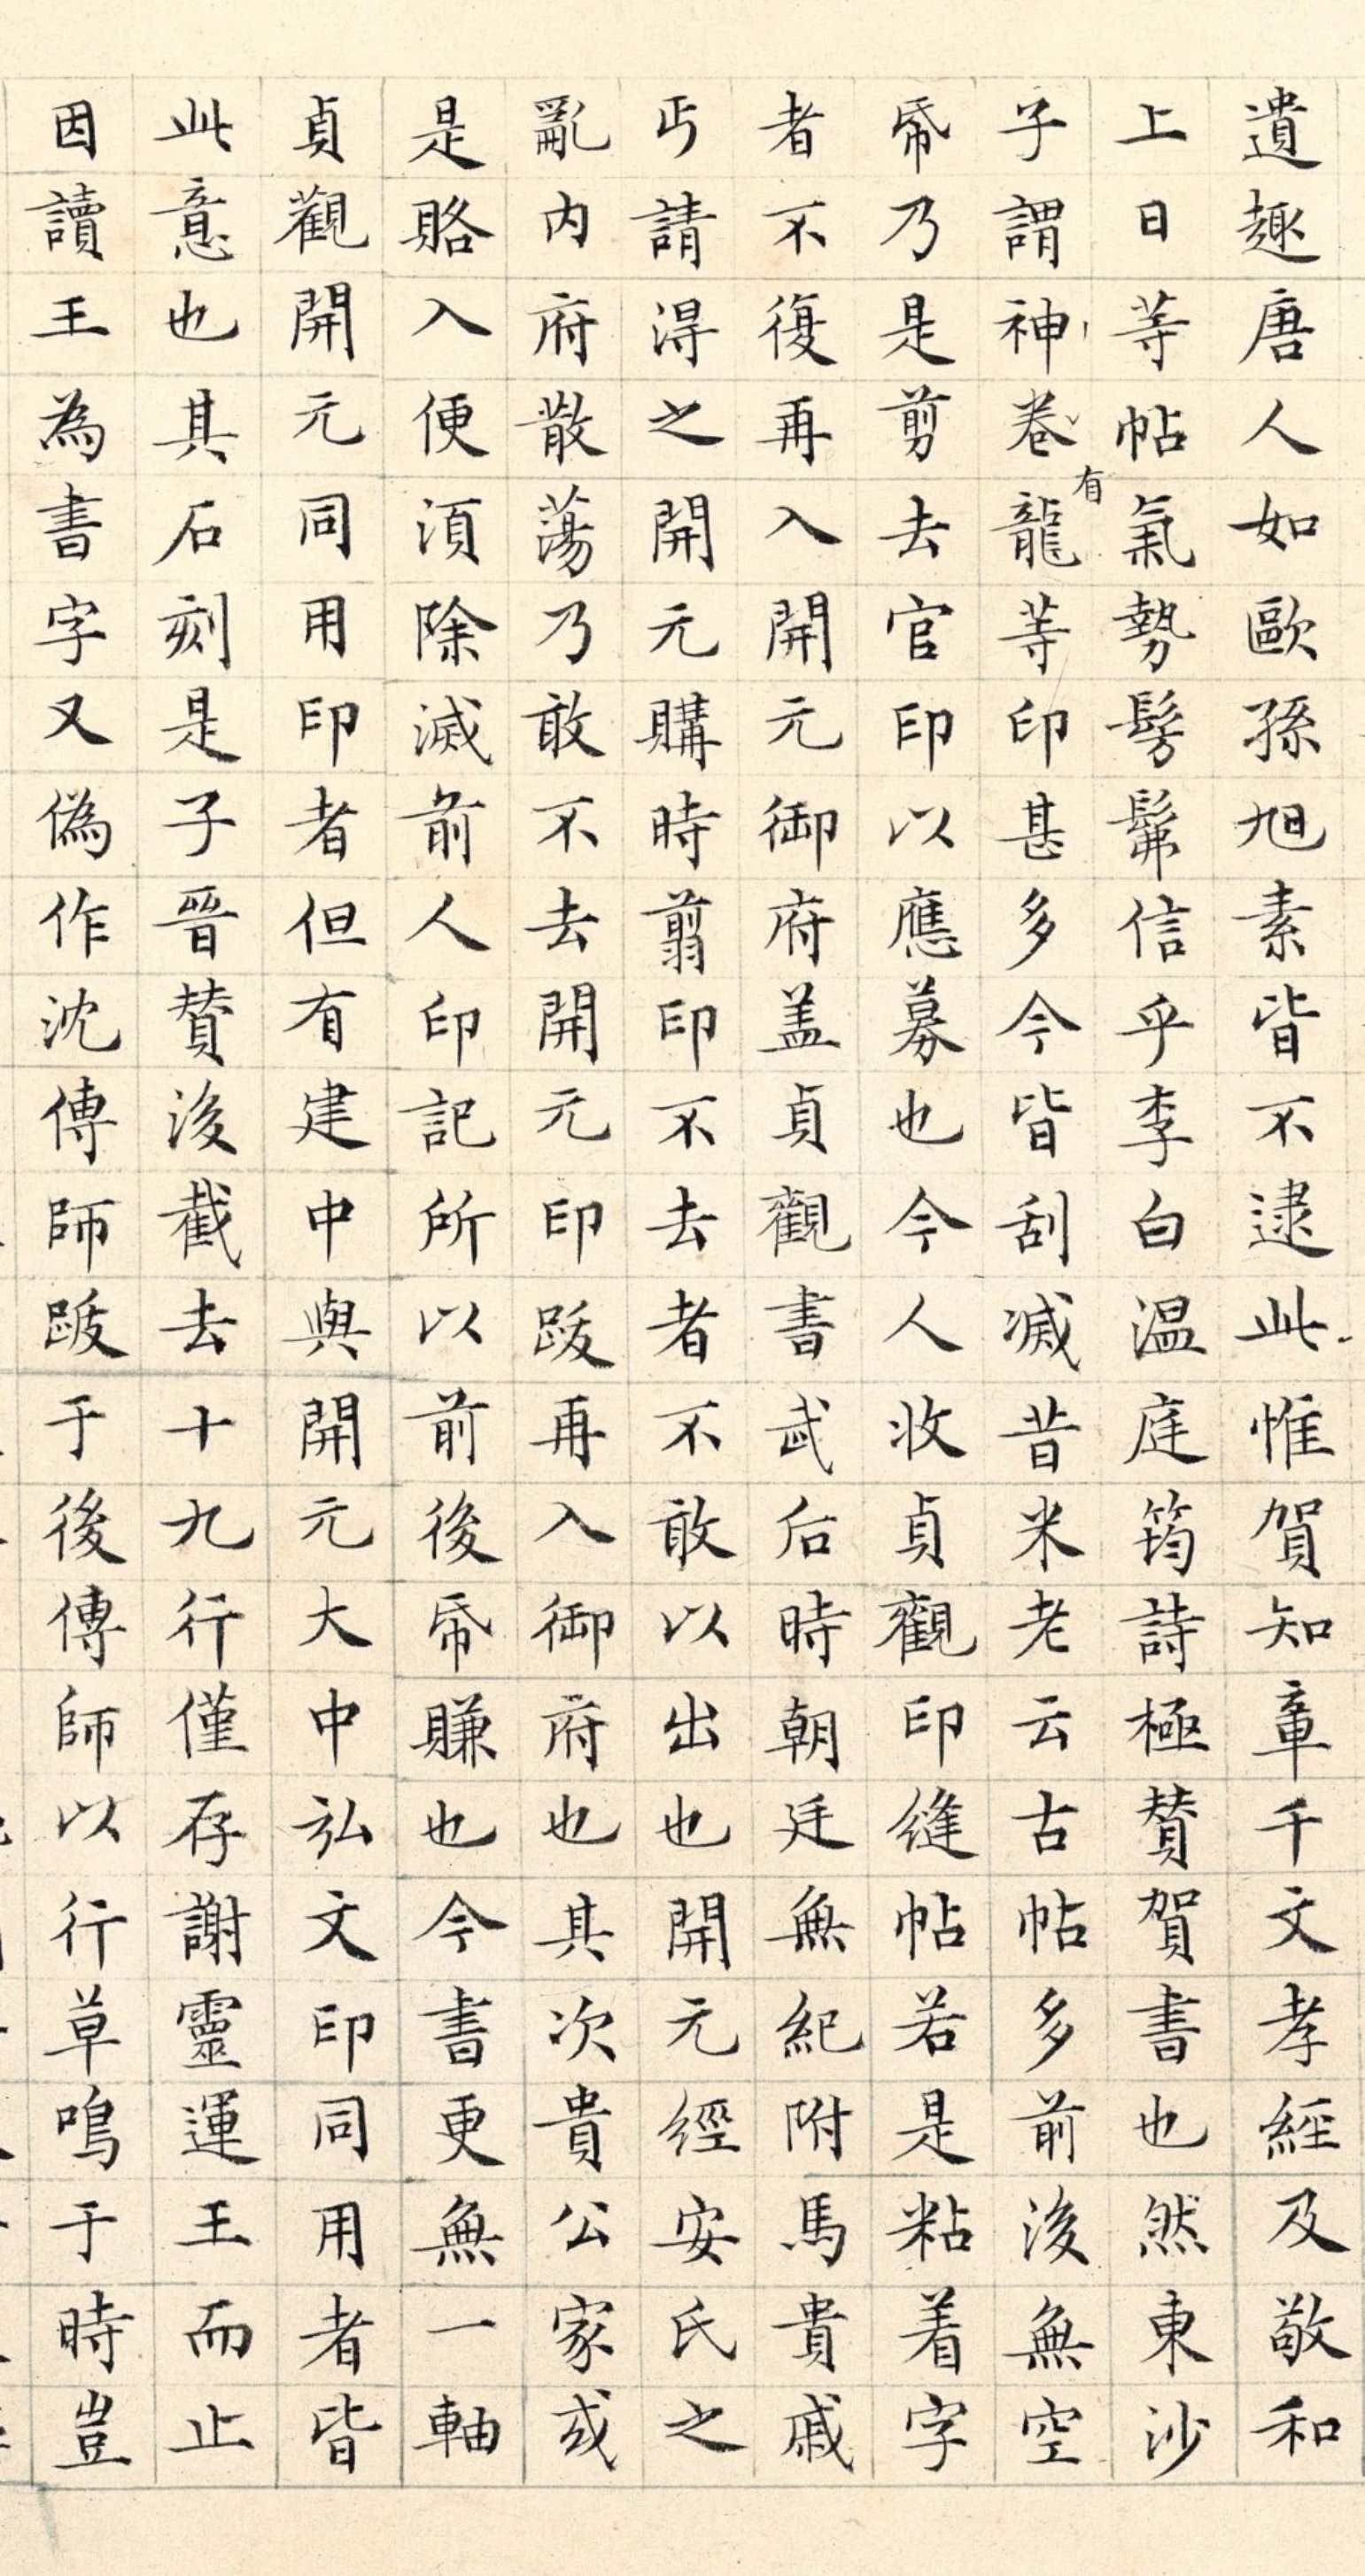 遺趣唐人如歐孫旭素皆不逮此惟賀知章千文孝經及敬和
上日等帖氣勢髣髴信乎李白温庭筠詩極賛賀書也然東沙
子謂神卷有龍等印甚多今皆刮滅昔米老云古帖多前後無空
帋乃是剪去官印以應募也今人收貞觀印縫帖若是粘着字
者不復再入開元御府盖貞觀書武后時朝廷無紀附馬貴戚
丐請得之開元購時翦印不去者不敢以出也開元經安氏之
亂内府散蕩乃敢不去開元印跋再入御府也其次貴公家或
是賂入便須除滅前人印記所以前後帋賺也今書更無一軸
貞觀開元同用印者但有建中與開元大中弘文印同用者皆
此意也其石刻是子晉賛後截去十九行僅存謝靈運王而止
因讀王為書字又偽作沈傳師跋于後傳師以行草鳴于時豈